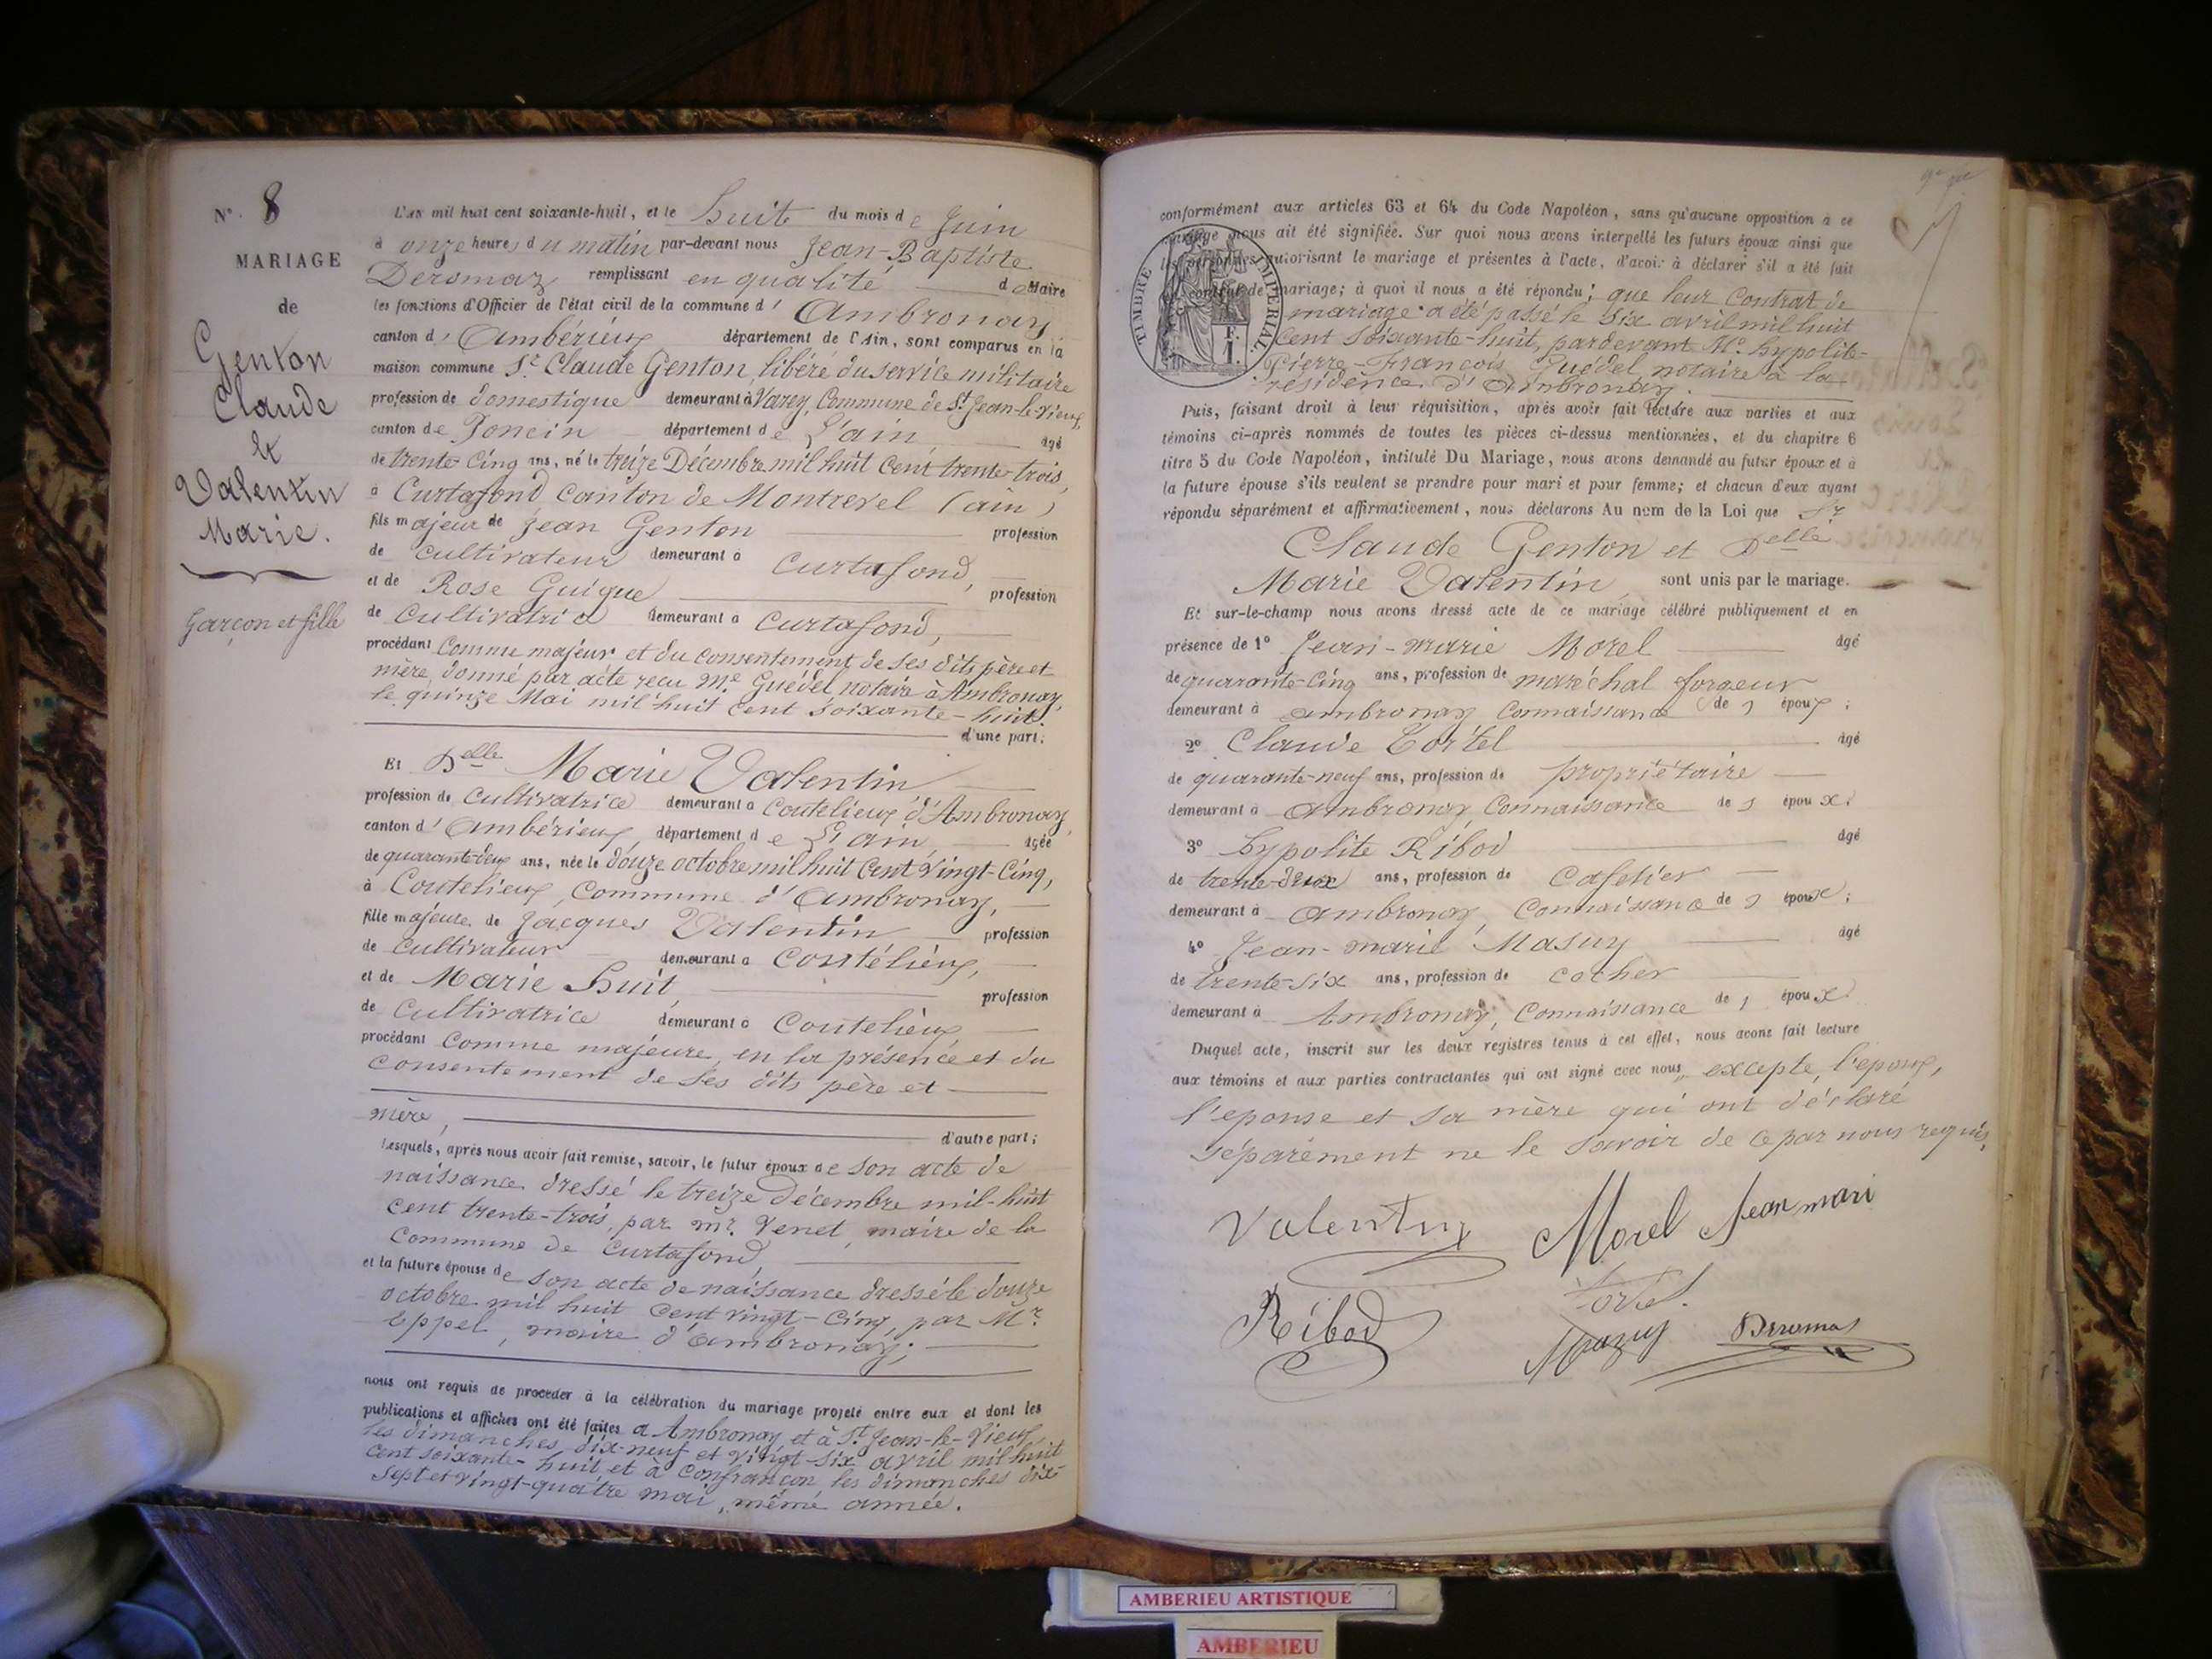 N°. 8
MARIAGE
de
Genton
Claude
&
Valentin
Marie.
Garçon et fille
L'an mil huit cent soixante-huit, et le huit du mois de Juin
à onze heures du matin par-devant nous Jean-Baptiste
Deromaz remplissant en qualité de Maire
les fonctions d'Officier de l'état civil de la commune d' Ambronay
canton d' Ambérieux département de l'Ain, sont comparus en la
maison commune Sr. Claude Genton, libéré du service militaire
profession de domestique demeurant à Varey, Commune de St. Jean-le-Vieux,
canton de Poncin département de L'ain âgé
de trente-cinq ans, né le treize Décembre mil huit cent trente-trois,
à Curtafond canton de Montrevel (ain)
fils majeur de Jean Genton profession
de cultivateur demeurant à Curtafond,
et de Rose Guigue profession
de cultivatrice demeurant à Curtafond,
procédant comme majeur et du consentement de ses dits père et
mère, donné par acte reçu Me. Guédel notaire à Ambronay,
le quinze Mai mil huit cent soixante-huit.
d'une part;
Et Delle Marie Valentin
profession de cultivatrice demeurant à Coutelieux d'Ambronay,
canton d' Ambérieux, département de L'ain, âgée
de quarante-deux ans, née le douze octobre mil huit cent vingt-cinq,
à Coutelieux, Commune d'Ambronay,
fille majeure de Jacques Valentin profession
de cultivateur demeurant à Coutélieux,
et de Marie Huit, profession
de cultivatrice demeurant à Coutelieux,
procédant comme majeure, en la présence et du
consentement de ses dits père et
mère,
d'autre part;
Lesquels, après nous avoir fait remise, savoir, le futur époux de son acte de
naissance dressé le treize Décembre mil-huit
cent trente-trois, par Mr. Venet, maire de la
Commune de Curtafond,
et la future épouse de son acte de naissance dressé le douze
octobre mil huit cent vingt-cinq, par Mr.
Eppel, maire d'Ambronay;
nous ont requis de procéder à la célébration du mariage projeté entre eux et dont les
publications et affiches ont été faites à Ambronay et à St. Jean-le-Vieux,
les dimanches dix-neuf et vingt-six avril mil huit
cent soixante-huit, et à Confrançon, les dimanches dix-
sept et vingt-quatre mai, même année.
conformément aux articles 63 et 64 du Code Napoléon, sans qu'aucune opposition à ce
mariage nous ait été signifiée. Sur quoi nous avons interpellé les futurs époux ainsi que
les personnes autorisant le mariage et présentes à l'acte, d'avoir à déclarer s'il a été fait
contrat de mariage; à quoi il nous a été répondu: que leur contrat de
mariage a été passé le six avril mil huit
cent soixante-huit, pardevant Me. Hypolite-
Pierre-François Guédel, notaire à la
résidence d'Ambronay.
TIMBRE IMPERIAL.
F.
1.
Puis, faisant droit à leur réquisition, après avoir fait lecture aux parties et aux
témoins ci-après nommés de toutes les pièces ci-dessus mentionnées, et du chapitre 6
titre 5 du Code Napoléon, intitulé Du Mariage, nous avons demandé au futur époux et à
la future épouse s'ils veulent se prendre pour mari et pour femme; et chacun d'eux ayant
répondu séparément et affirmativement, nous déclarons Au nom de la Loi que Sr
Claude Genton et Delle
Marie Valentin sont unis par le mariage.
Et sur-le-champ nous avons dressé acte de ce mariage célébré publiquement et en
présence de 1° Jean-marie Morel âgé
de quarante-cinq ans, profession de maréchal forgeur
demeurant à ambronay connaissance des époux;
2° Claude Tortel âgé
de quarante-neuf ans, profession de propriétaire
demeurant à ambronay, connaissance des époux;
3° Hypolite Ribod âgé
de trente-deux ans, profession de cafetier
demeurant à ambronay, connaissance des époux;
4° Jean-marie Masuy âgé
de trente-six ans, profession de cocher
demeurant à Ambronay, connaissance des époux
Duquel acte, inscrit sur les deux registres tenus à cet effet, nous avons fait lecture
aux témoins et aux parties contractantes qui ont signé avec nous, excepté l'époux,
l'épouse et sa mère qui ont déclaré
séparément ne le savoir de ce par nous requis,
Valentin Morel Jean mari
Ribod Tortel
Mazuy Deromas
AMBERIEU ARTISTIQUE
AMBERIEU